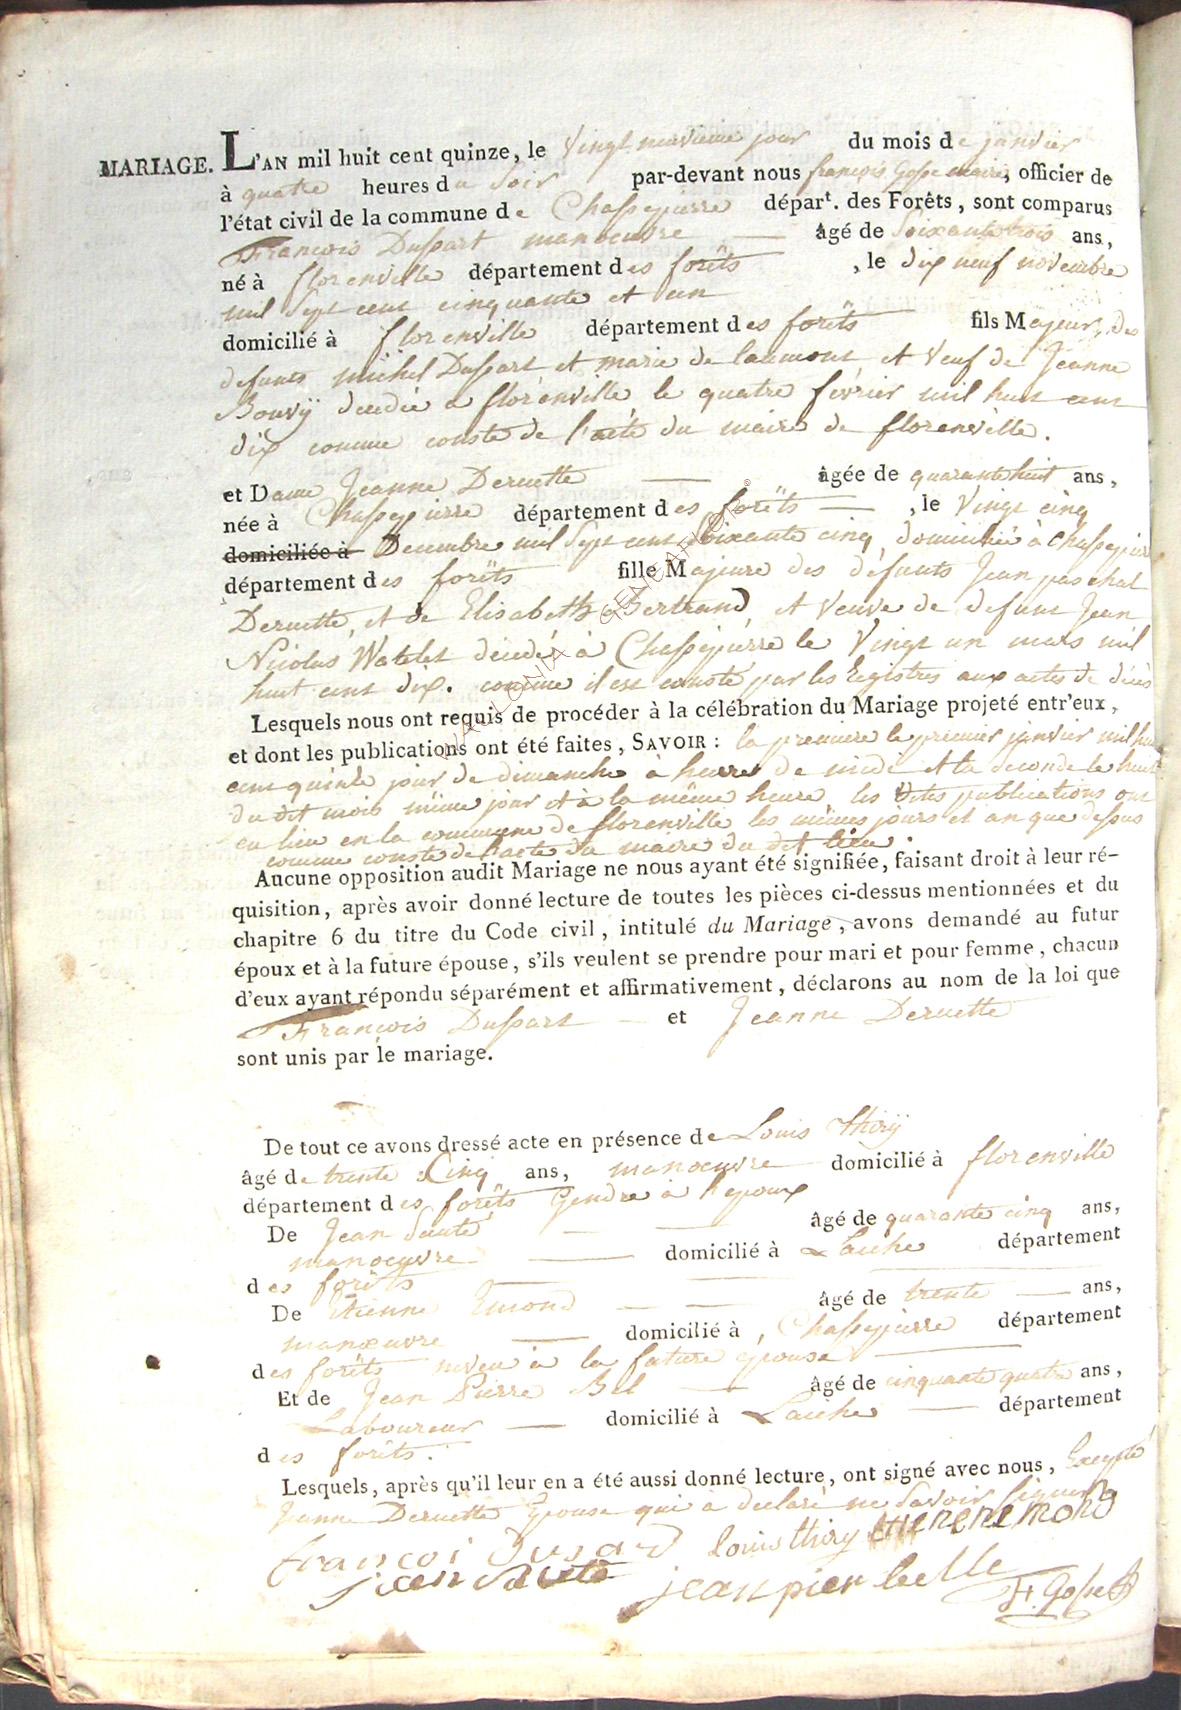 MARIAGE. L'AN mil huit cent quinze, le Vingt neuvieme jour du mois de janvier
à quatre heures du Soir par-devant nous françois Gosse maire, officier de
l'état civil de la commune de Chassepierre départ. des Forêts, sont comparus
François Dussart manoeuvre âgé de Soixante trois ans,
né à florenville département des forêts, le dix neuf novembre
mil Sept cent cinquante et un
domicilié à florenville département des forêts fils Majeur, des
defunts michel Dussart et marie de laumont et Veuf de Jeanne
Bouvÿ décédée a florenville le quatre février mil huit cent
dix comme conste de l'acte du maire de florenville.
et Dame Jeanne Deruette âgée de quarante huit ans,
née à Chassepierre département des forêts, le Vingt cinq
domiciliée à Decembre mil Sept cent Soixante cinq, domiciliée à Chassepierre
département des forêts fille Majeure des défunts Jean paschal
Deruette, et de Elisabeth Bertrand, et Veuve de defunt Jean
Nicolas Watelet décédé à Chassepierre le Vingt un mars mil
huit cent dix. comme il est consté par les Registres aux actes de décès
Lesquels nous ont requis de procéder à la célébration du Mariage projeté entr'eux,
et dont les publications ont été faites, SAVOIR : la premiere le premier janvier mil huit
cent quinze jour de dimanche à heure de midi et la seconde le huit
du dit mois même jour et à la même heure, les dites publications ont
eu lieu en la commune de florenville les mêmes jours et an que dessus
comme conste de l'acte du maire du dit lieu.
Aucune opposition audit Mariage ne nous ayant été signifiée, faisant droit à leur ré-
quisition, après avoir donné lecture de toutes les pièces ci-dessus mentionnées et du
chapitre 6 du titre du Code civil, intitulé du Mariage, avons demandé au futur
époux et à la future épouse, s'ils veulent se prendre pour mari et pour femme, chacun
d'eux ayant répondu séparément et affirmativement, déclarons au nom de la loi que
François Dussart et Jeanne Deruette
sont unis par le mariage.
De tout ce avons dressé acte en présence de Louis thirÿ
âgé de trente Cinq ans, manoeuvre domicilié à florenville
département des forêts Gendre à l'epoux
De Jean Sauté âgé de quarante cinq ans,
manoeuvre domicilié à Laiche département
des forêts
De Etienne Emond âgé de trente ans,
manœuvre domicilié à, Chassepierre département
des forêts neveu à la future epouse
Et de Jean Pierre Bel âgé de cinquante quatre ans,
Laboureur domicilié à Laiche département
des forêts.
Lesquels, après qu'il leur en a été aussi donné lecture, ont signé avec nous, Excepté
Jeanne Deruette Epouse qui à déclaré ne Savoir Signer
françoi Dusard louis thiry etienenemond
jean Saute jeanpier belle F. Gosse
WALLONIA GENEARCH. ©